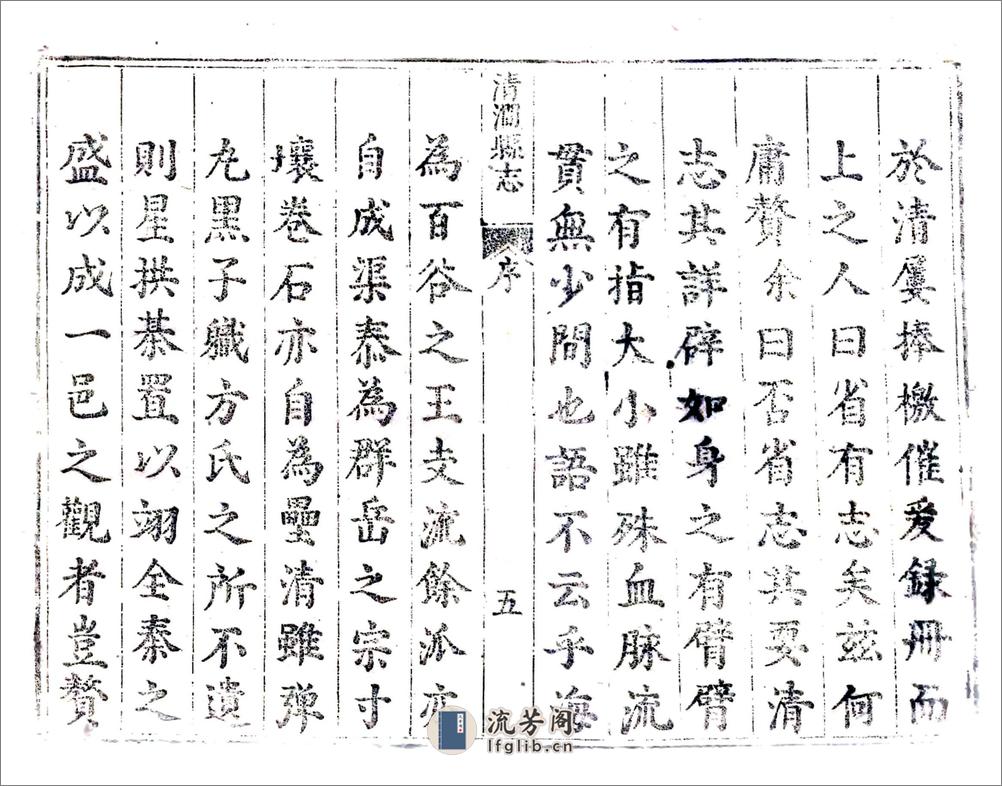 於清屢捧檄催爰録冊而
上之人曰省有志矣玆何
庸贅余曰否省志其要清
志其詳辟如身之有臂臂
之有指大小雖殊血脉流
貫無少間也語不云乎海
清澗縣志
序
五
為百谷之王支流餘派亦
自成渠泰為群岳之宗寸
壤卷石亦自為壘清雖弹
丸黒子職方氏之所不遺
則星拱棊置以翊全秦之
盛以成一邑之觀者豈贅
流芳阁
lfglib.cn